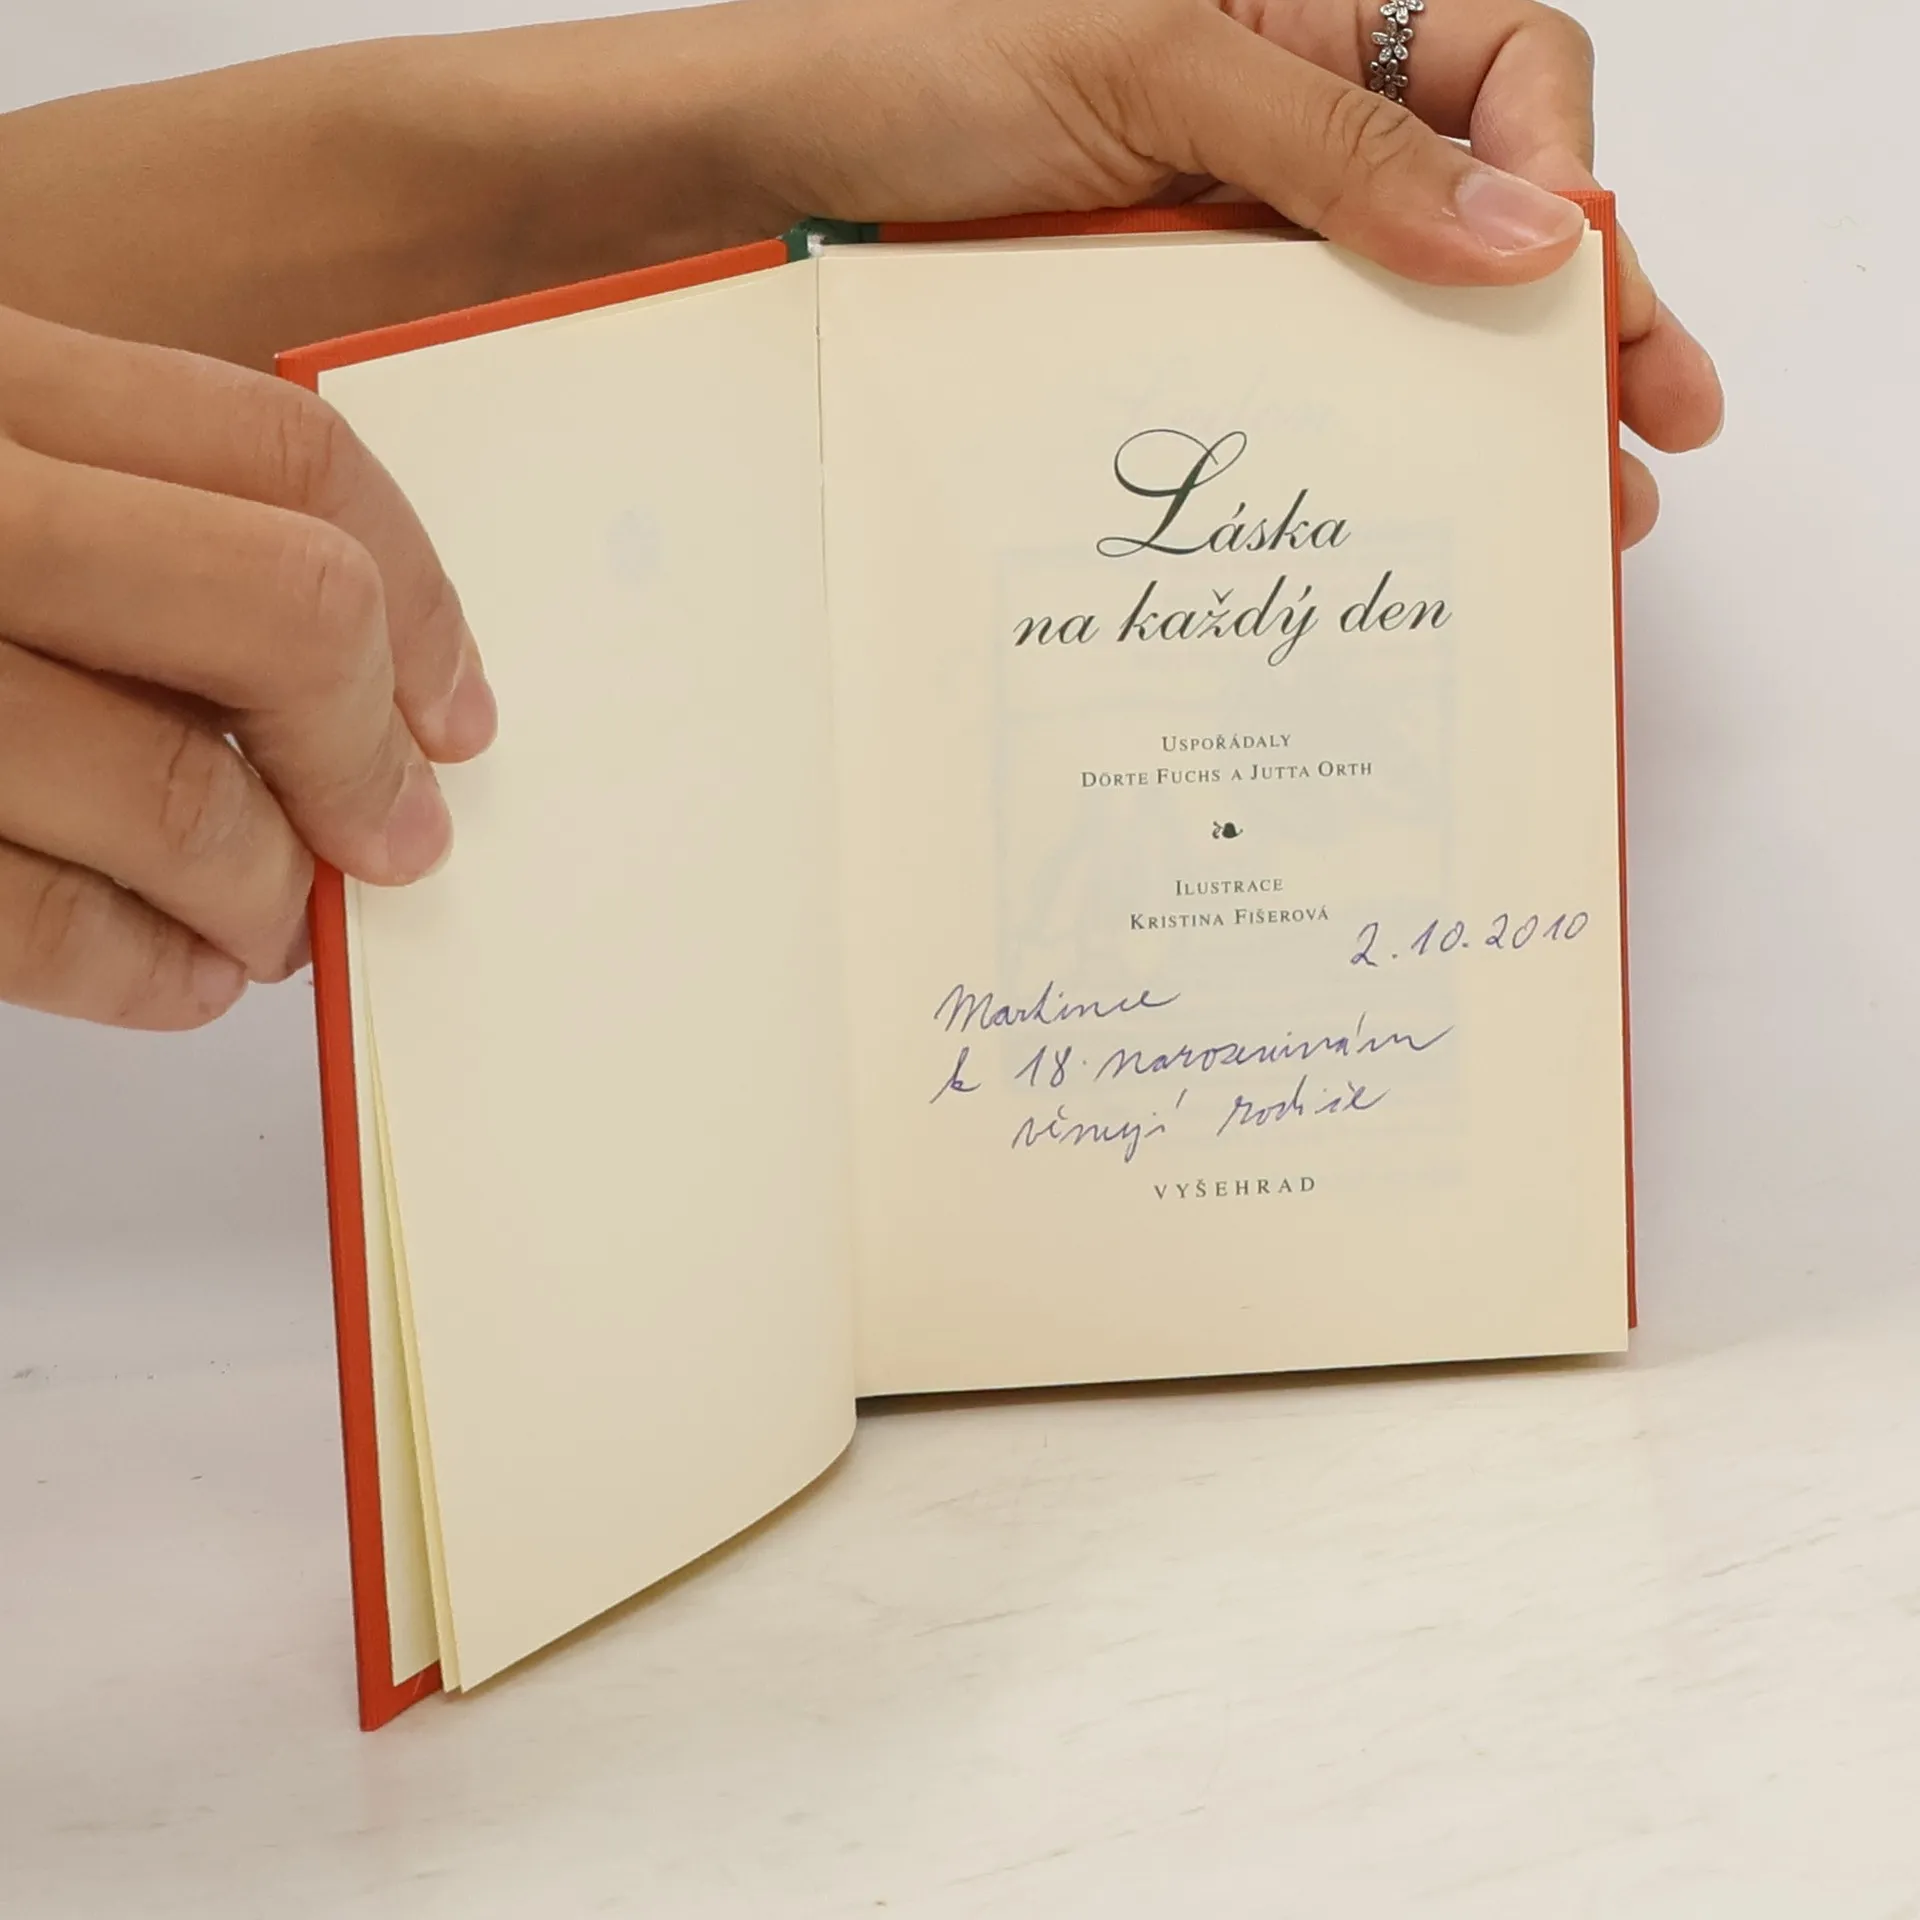 Láska
na každý den
USPOŘÁDALY
DÖRTE FUCHS A JUTTA ORTH
ILUSTRACE
KRISTINA FIŠEROVÁ
2.10.2010
Martince
k 18. narozeninám
věnují rodiče
VYŠEHRAD